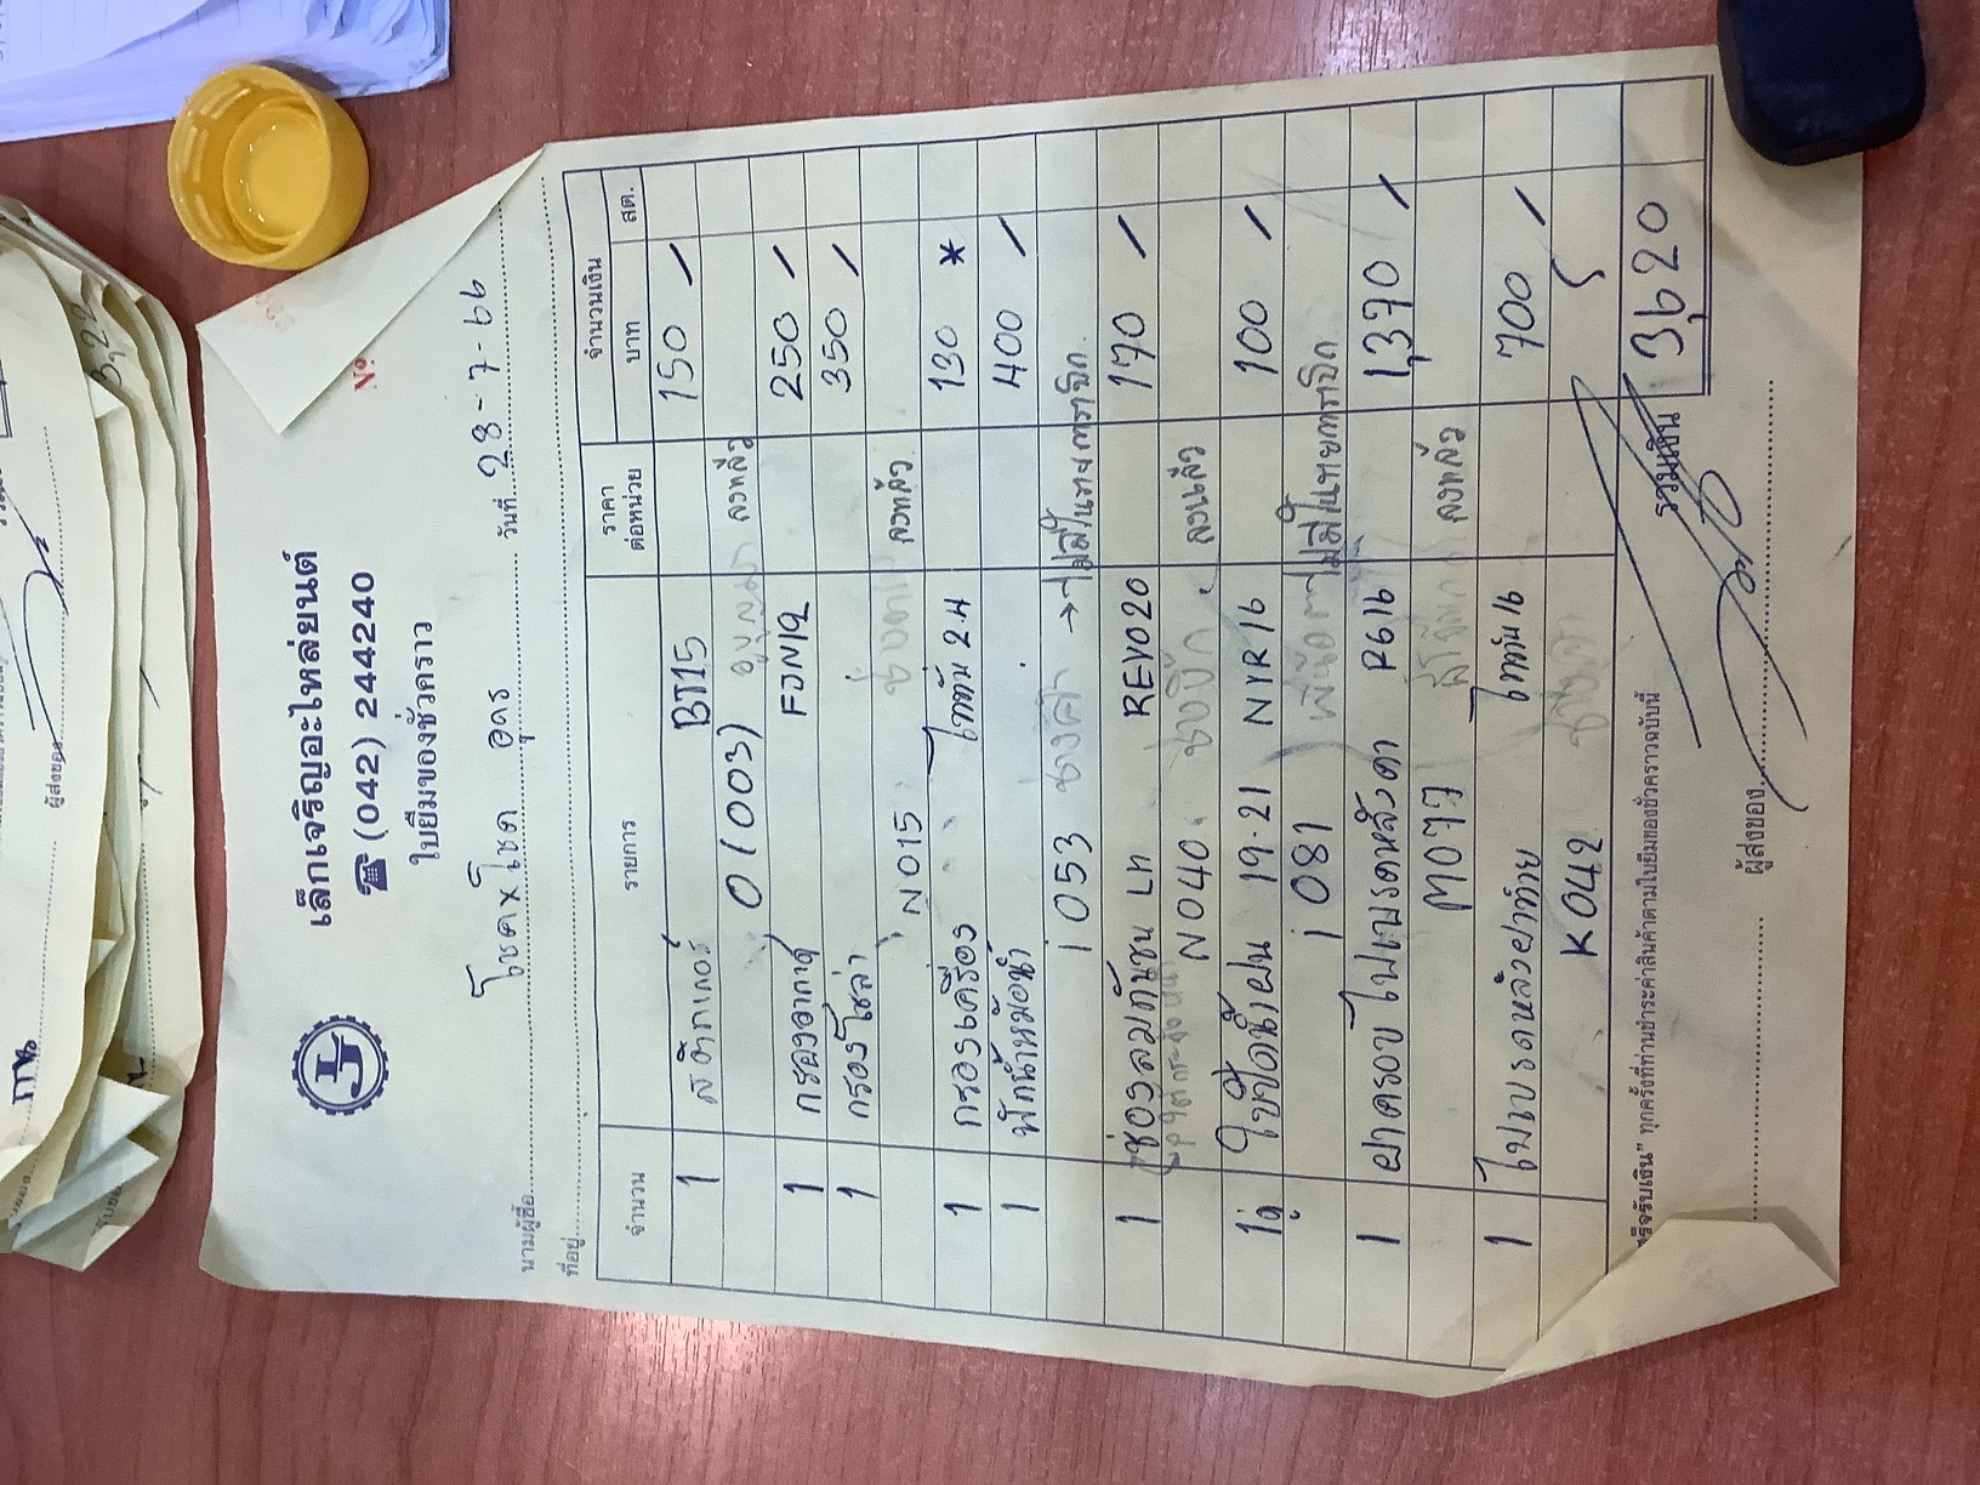 เล็กเจริญอะไหล่ยนต์
☎ (042) 244240
ใบยืมของชั่วคราว
Nº
นามผู้ซื้อ โชคxโชค อุดร วันที่ 28-7-66
ที่อยู่
จำนวน รายการ ราคาต่อหน่วย จำนวนเงิน
บาท สต.
1 สติกเกอร์ BT15 150 /
O(003) ลงแล้ว
1 กรองอากาศ FJN12 250 /
1 กรองโซล่า 350 /
N015 ลงแล้ว
1 กรองเครื่อง ไททัน 2.4 130 *
1 พักน้ำหม้อน้ำ 400 /
i 053 →ไม่มี
1 ช่องลมกันชน LH REVO20 170 /
N040 ลงแล้ว
1คู่ ใบปัดน้ำฝน 19-21 NYR16 100 /
i 081 ไม่มี
1 ฝาครอบไฟเบรคหลังดำ R616 1,370 /
M077 ลงแล้ว
1 ไฟเบรคหลังฝาท้าย ไททัน16 700 /
K042
รวมเงิน 3,620
ทุกครั้งที่ท่านชำระค่าสินค้าตามใบยืมของชั่วคราวฉบับนี้
ผู้ส่งของ